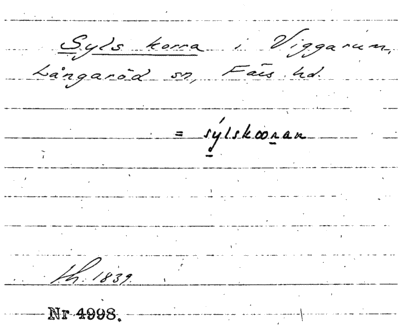 Syls korra i Viggarum,
Långaröd sn, Färs hd.
= sýlskooran
th. 1839.
Nr 4998.